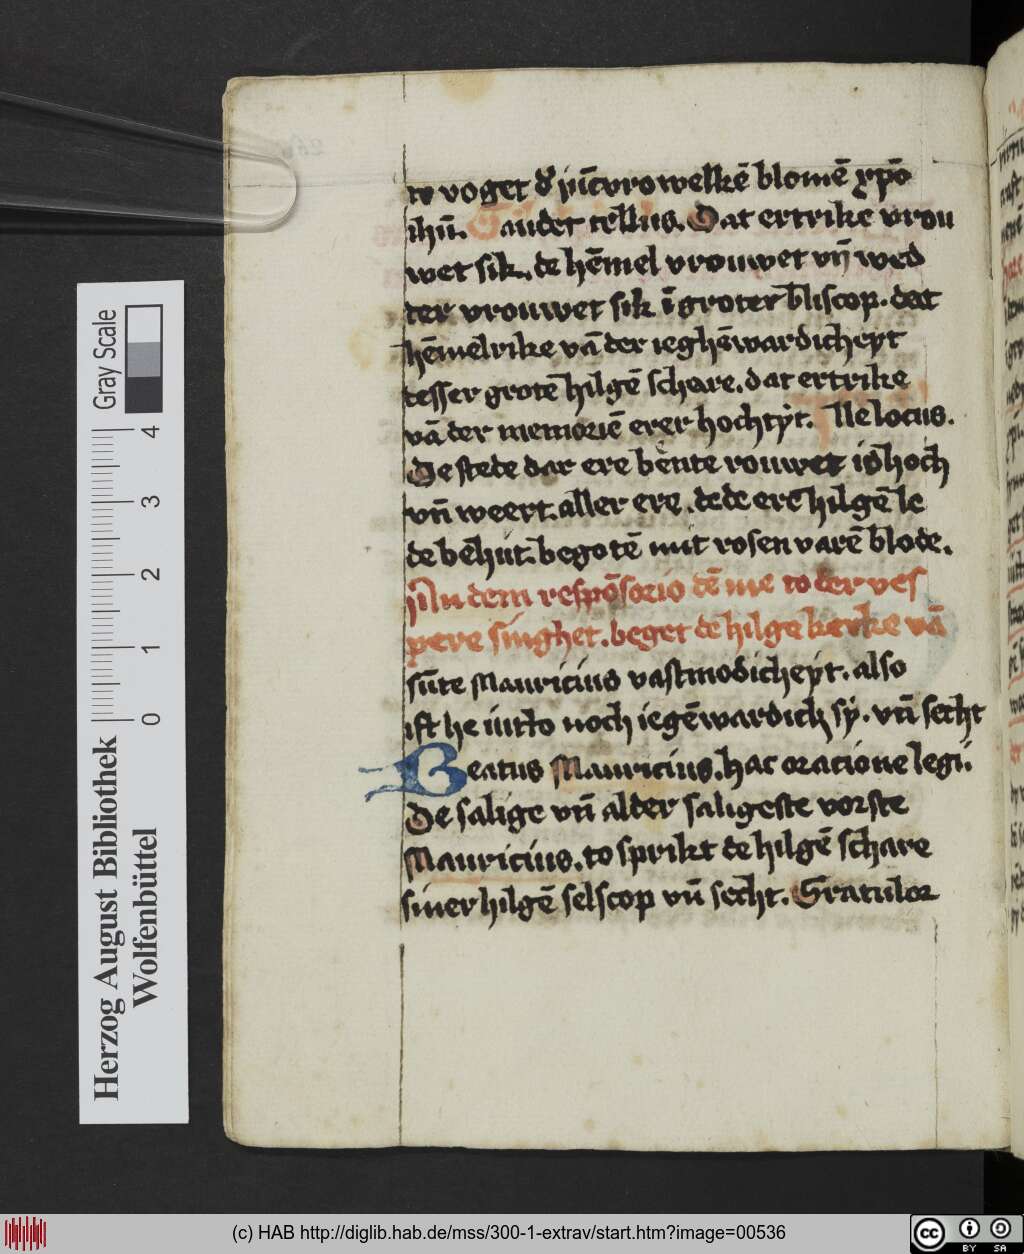 to voget d' iūcvrowelkē blomē xpō
ihū. Gaudet tellus. Dat ertrike vrou
wet sik. de hēmel vrouwet vn̄ wed
der vrouwet sik ī groter bliscop. dat
hēmelrike vā der ieghēwardicheyt
tesser grotē hilgē schare. dat ertrike
vā der memoriē erer hochtyt. Ille locus.
De stede dar ere bēnte rouwet is hoch
vn̄ weert. aller ere. de de erē hilgē le
de bēhut. begotē mit rosenvarē blode.
In dem respōsorio dē me to der ves
pere singhet. beget de hilge kerke vā
sūte Mauricius vastmodicheyt. also
ift he iutto noch iegēwardich sy. vn̄ secht
Beatus Mauricius. hac oracione legi.
De salige vn̄ alder saligeste vorste
Mauricius. to sprikt de hilgē schare
siner hilgē selscop vn̄ secht. Gratulor
Herzog August Bibliothek
Wolfenbüttel
Gray Scale
0 1 2 3 4
(c) HAB http://diglib.hab.de/mss/300-1-extrav/start.htm?image=00536
cc BY SA